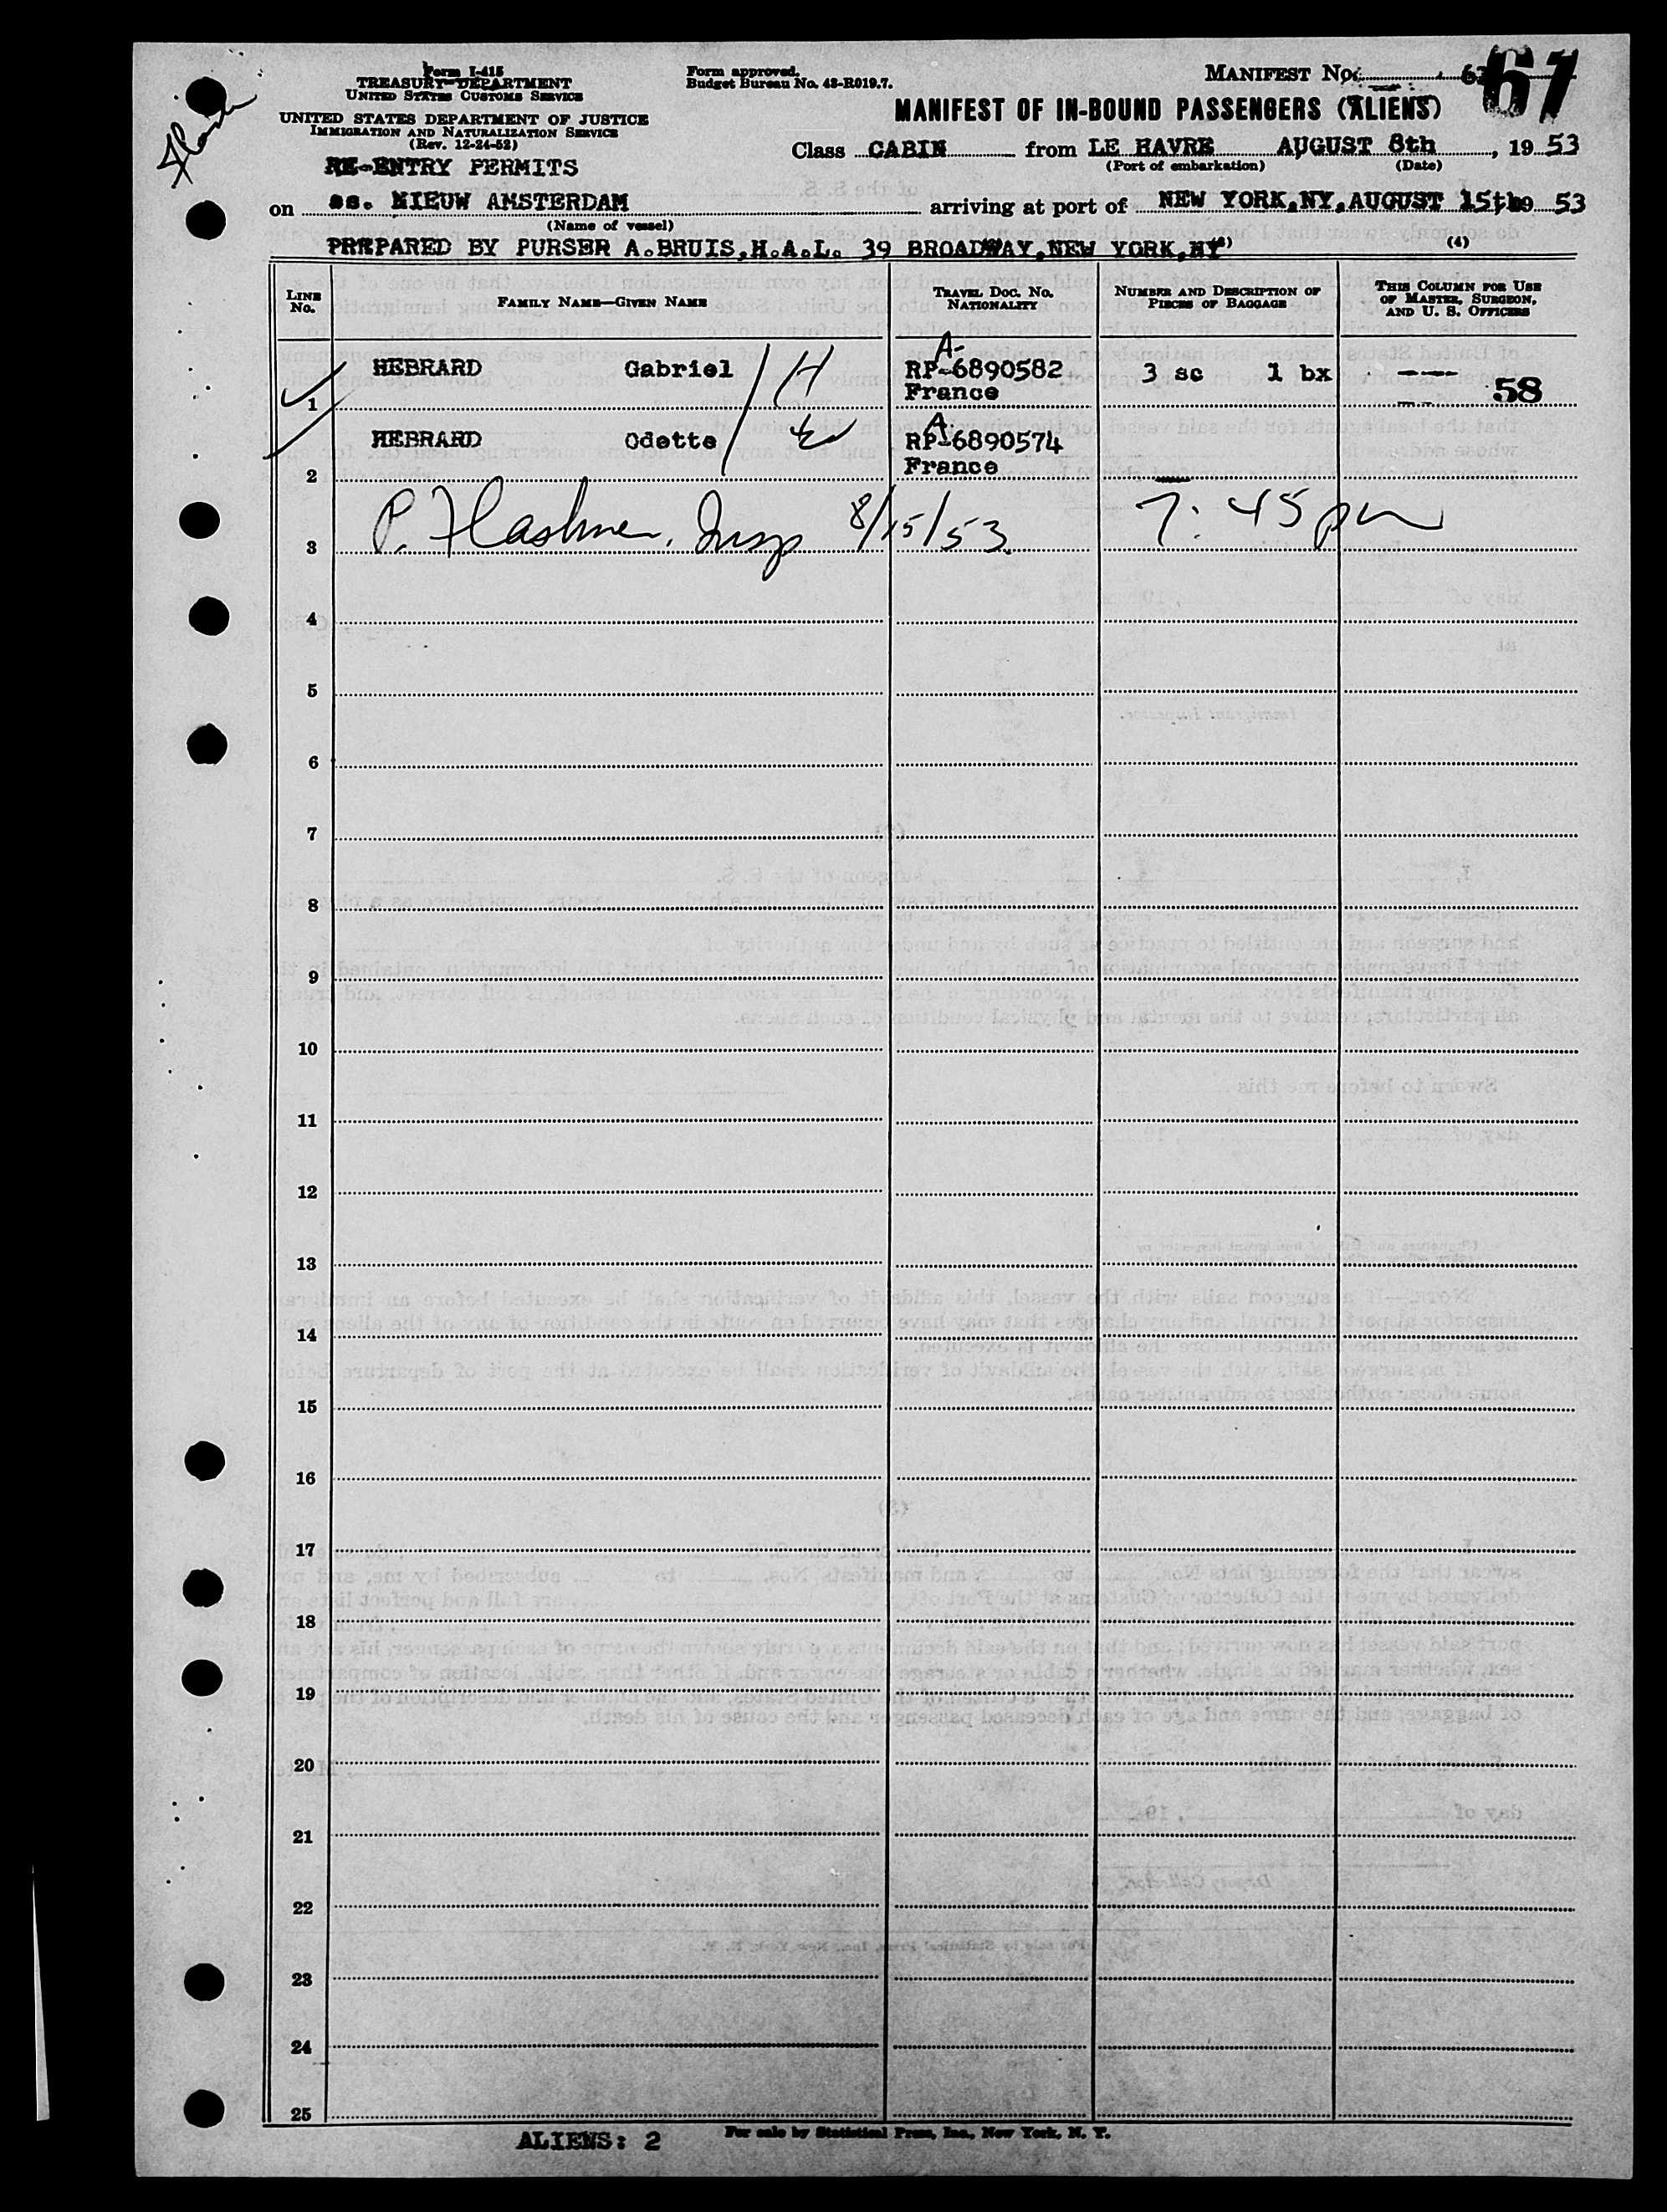 Form I-415
TREASURY DEPARTMENT
UNITED STATES CUSTOMS SERVICE
UNITED STATES DEPARTMENT OF JUSTICE
IMMIGRATION AND NATURALIZATION SERVICE
(Rev. 12-24-52)
RE-ENTRY PERMITS
Form approved.
Budget Bureau No. 43-R019.7.
MANIFEST No. 61
MANIFEST OF IN-BOUND PASSENGERS (ALIENS)
Class CABIN from LE HAVRE AUGUST 8th, 19 53
(Port of embarkation) (Date)
on ss. NIEUW AMSTERDAM arriving at port of NEW YORK,NY,AUGUST 15th 19 53
(Name of vessel)
PREPARED BY PURSER A.BRUIS,H.A.L. 39 BROADWAY,NEW YORK,NY (4)
LINE No. FAMILY NAME—GIVEN NAME TRAVEL DOC. No. NATIONALITY NUMBER AND DESCRIPTION OF PIECES OF BAGGAGE THIS COLUMN FOR USE OF MASTER, SURGEON, AND U. S. OFFICERS
1 HEBRARD Gabriel H A- RP-6890582 France 3 sc 1 bx --- 58
2 HEBRARD Odette A- RP-6890574 France
3 P. Flashner, Insp 8/15/53 7:45 pm
4
5
6
7
8
9
10
11
12
13
14
15
16
17
18
19
20
21
22
23
24
25
ALIENS: 2
For sale by Statistical Press, Inc., New York, N. Y.